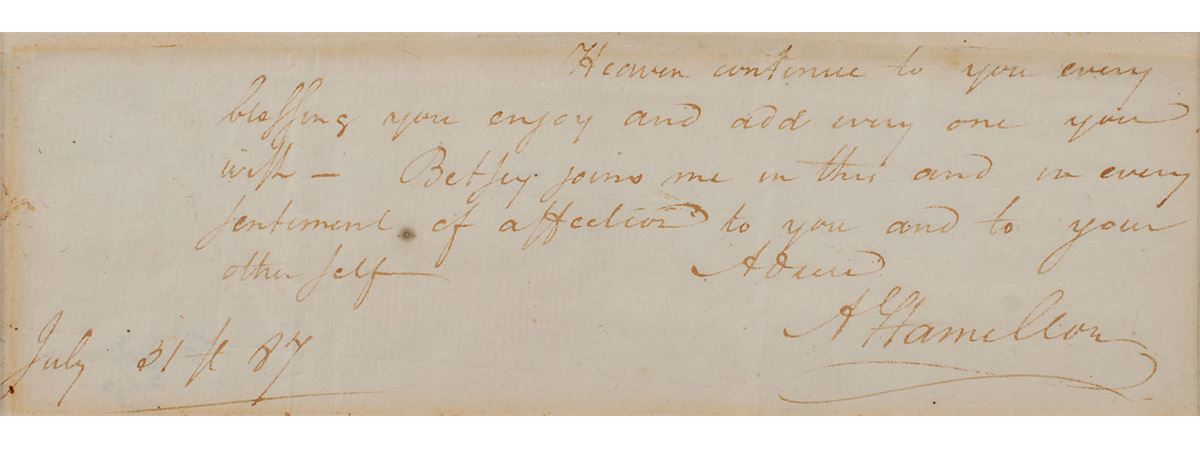 Heaven continue to you every
blessing you enjoy and add every one you
wish — Betsey joins me in this and in every
sentiment of affection to you and to your
other self Adieu
A Hamilton
July 31st 87